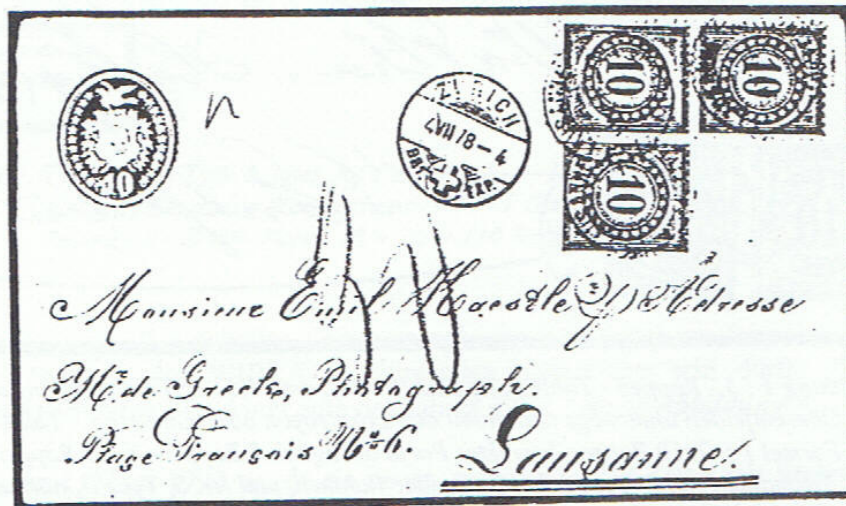 10 10
ZÜRICH
4 VII 78 – 4
BRF. EXP.
10
10
30
Monsieur Emil Haestle adresse
Mr. de Greck, Photograph.
Place Français No. 6.
Lausanne!